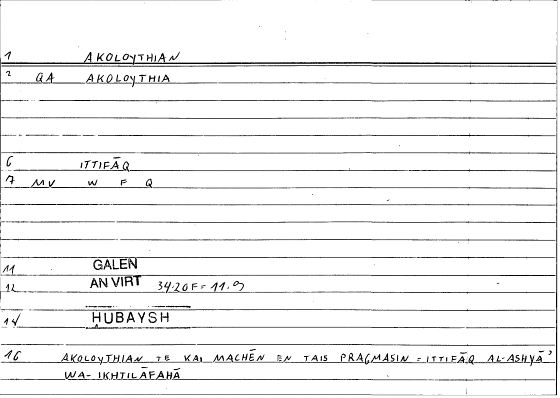 1 AKOLOYTHIAN
2 QA AKOLOYTHIA
6 ITTIFĀQ
7 MV W F Q
11 GALEN
12 AN VIRT 34.20F = 11.9
14 HUBAYSH
16 AKOLOYTHIAN TE KAI MACHĒN EN TAIS PRAGMASIN = ITTIFĀQ AL-ASHYĀʾ
WA-IKHTILĀFAHĀ